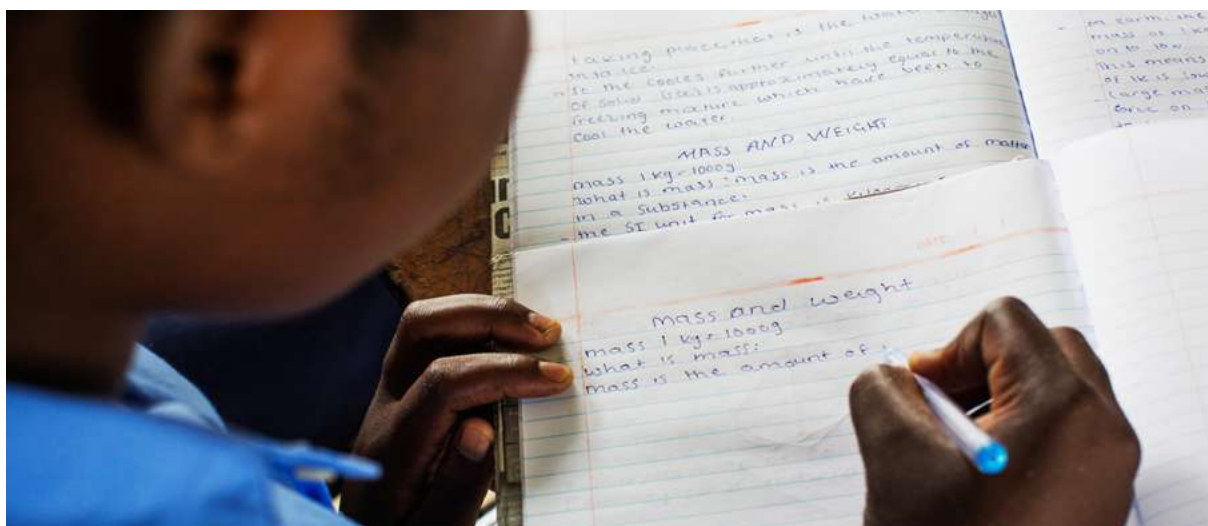 taking place that is the water
into ice.
- It the cooles further until the temperature
of solid (ice) is approximately equal to the
freezing mixture which have been to
cool the water.
MASS AND WEIGHT
mass 1 kg = 1000g
What is mass: mass is the amount of matter
in a substance.
- the SI unit for mass is
on earth the
mass of 1 k
on to 10
This means
of 1k is
- Large mas
on
mass and weight
mass 1 kg = 1000g
what is mass:
mass is the amount of